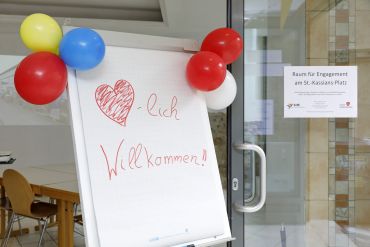 -lich
Willkommen!!
Raum für Engagement
am St.-Kassians-Platz